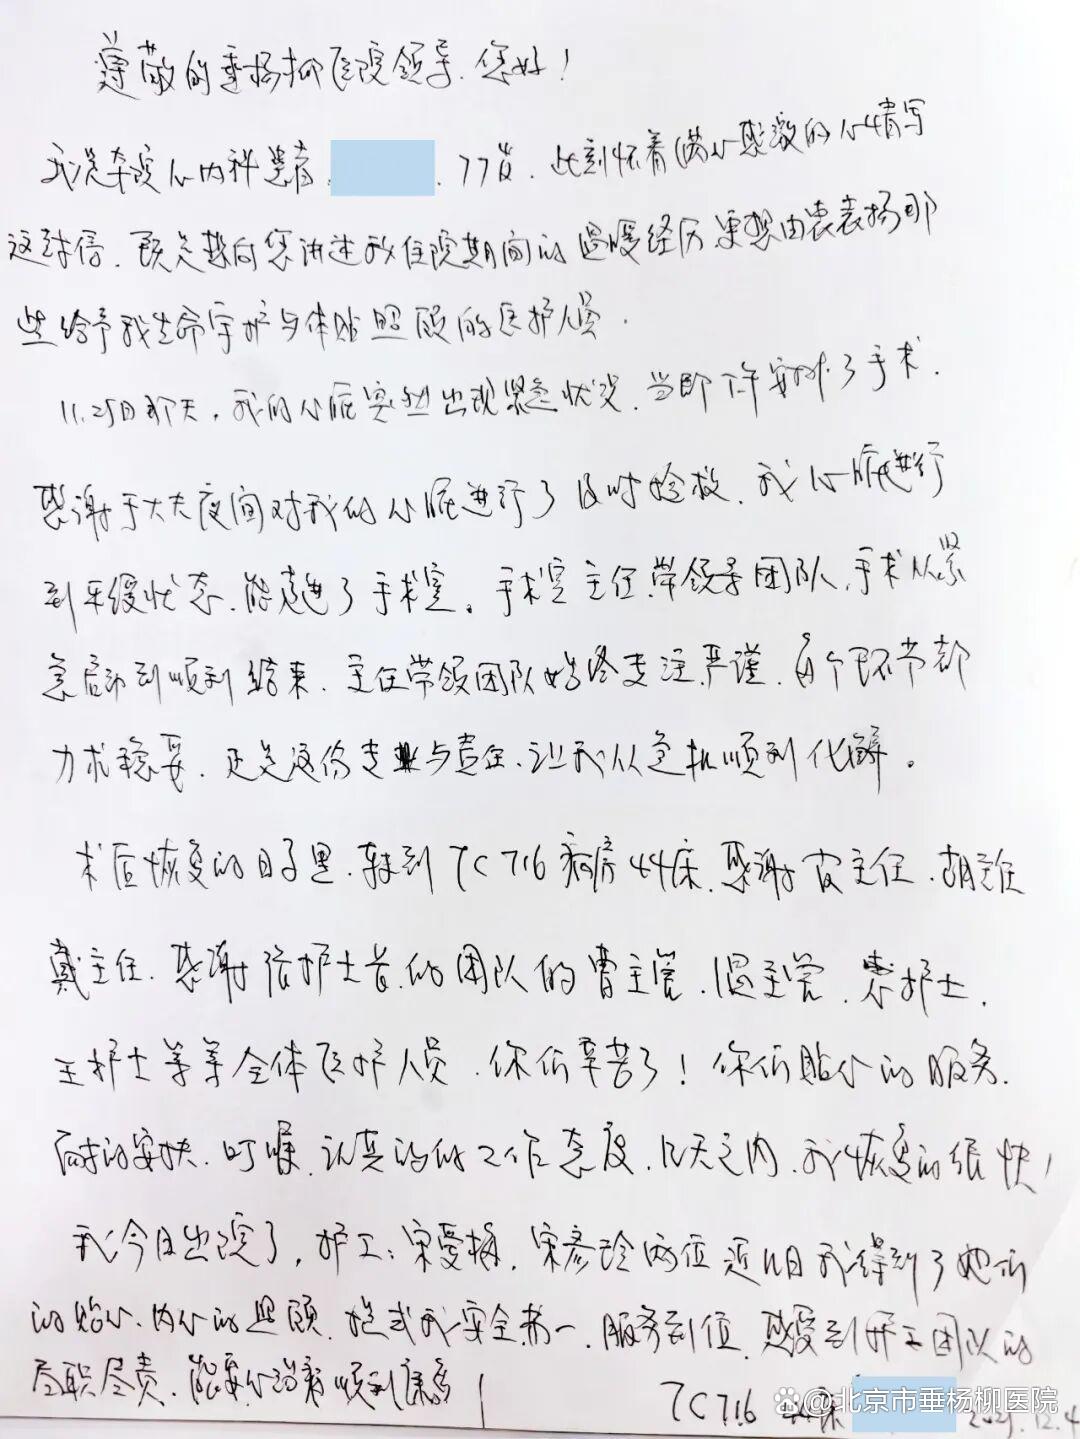 尊敬的垂杨柳医院领导.您好!
我是本院心内科患者. .77岁.此刻怀着满心感激的心情写
这封信.预先想向您讲述我住院期间的温暖经历更想由衷表扬那
些给予我生命守护与体贴照顾的医护人员.
11.25日那天,我的心脏突然出现紧急状况.当即下午安排了手术.
感谢于大夫夜间对我的心脏进行了及时抢救.我心脏进行
到平缓状态.能走进了手术室。手术室主任.带领导团队.手术从紧
急启动到顺利结束.主任带领团队始终专注.严谨.每个环节都
力求稳妥.正是这份专业与责任.让我从危机顺利化解。
术后恢复的日子里.转到7C 716病房44床.感谢 主任.胡主任
戴主任.感谢 护士长.的团队的曹主管.温主管. 护士.
王护士等等全体医护人员.你们辛苦了!你们贴心的服务.
耐心的 .叮嘱.认真的的工作态度.几天之内.我恢复的很快!
我今日出院了,护工:宋爱梅.宋彦玲两位近几日我得到了她们
的贴心.内心的照顾. 我安全第一.服务到位.感受到护工团队的
尽职尽责. 顺利康复!
7C 716 44床 2025.12.4
@北京市垂杨柳医院